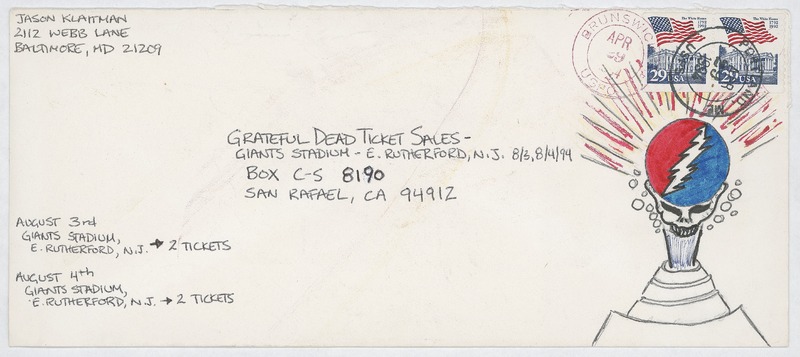 JASON KLAITMAN
2112 WEBB LANE
BALTIMORE, MD 21209
BRUNSWIC
APR
USPO
The White House
1792 1992
29 USA
The White House
1792 1992
29 USA
PORTLAND
ME
GRATEFUL DEAD TICKET SALES-
GIANTS STADIUM - E. RUTHERFORD, N.J. 8/3, 8/4/94
BOX C-S 8190
SAN RAFAEL, CA 94912
AUGUST 3rd
GIANTS STADIUM,
E. RUTHERFORD, N.J. → 2 TICKETS
AUGUST 4th
GIANTS STADIUM,
E. RUTHERFORD, N.J. → 2 TICKETS